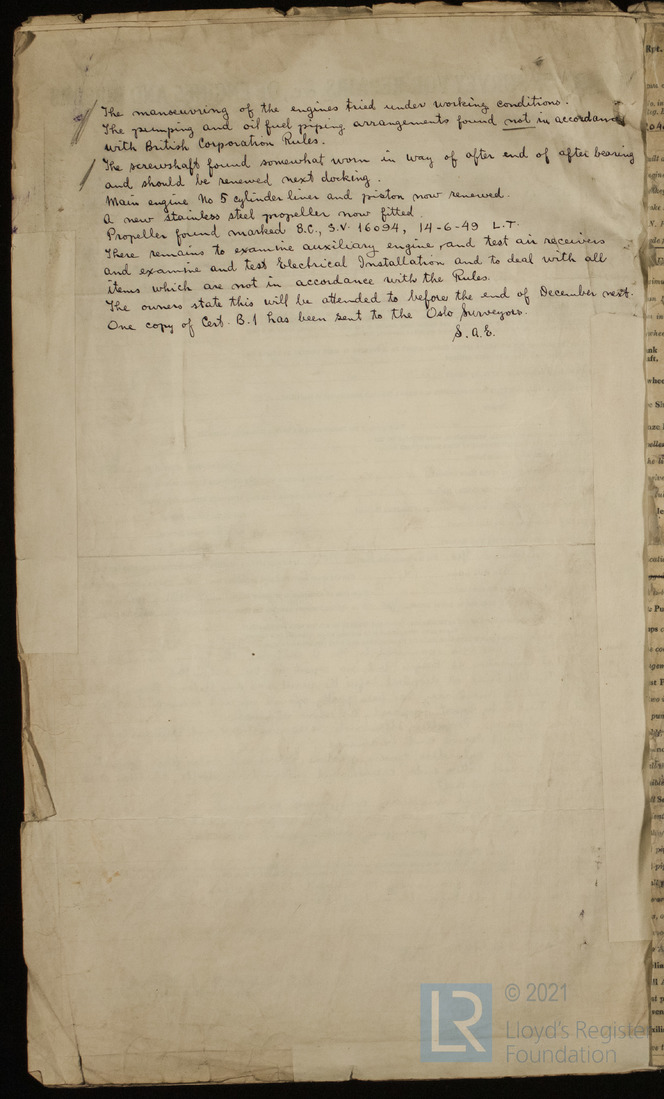 The manoeuvring of the engines tried under working conditions.
The pumping and oil fuel piping arrangements found not in accordance
with British Corporation Rules.
The screwshaft found somewhat worn in way of after end of after bearing
and should be renewed next docking.
Main engine No 5 cylinder liner and piston now renewed.
A new stainless steel propeller now fitted.
Propeller found marked B.C., S.V. 16094, 14-6-49 L.T.
There remains to examine auxiliary engine, and test air receivers
and examine and test Electrical Installation and to deal with all
items which are not in accordance with the Rules.
The owners state this will be attended to before the end of December next.
One copy of Cert. B.1 has been sent to the Oslo Surveyors.
S.A.E.
Rpt.
LR
© 2021
Lloyd's Register
Foundation